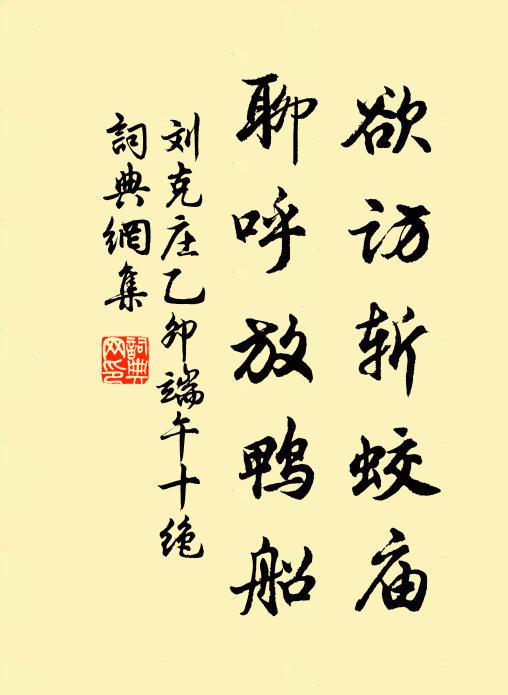 欲访斩蛟庙
聊呼放鸭船
刘克庄乙卯端午十绝
詞典網集
詞典网印